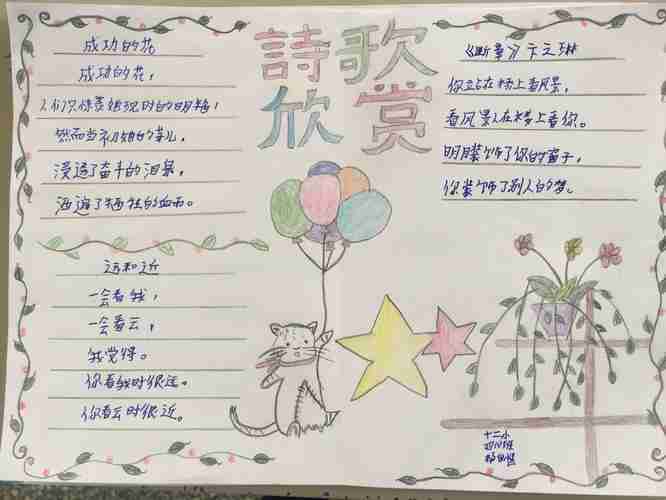 詩歌
欣赏
成功的花
成功的花，
人们只惊羡她现时的明艳！
然而当初她的芽儿，
浸透了奋斗的泪泉，
洒遍了牺牲的血雨。
远和近
一会看我，
一会看云，
我觉得。
你看我时很远。
你看云时很近。
《断章》卞之琳
你站在桥上看风景，
看风景人在楼上看你。
明月装饰了你的窗子，
你装饰了别人的梦。
十二小